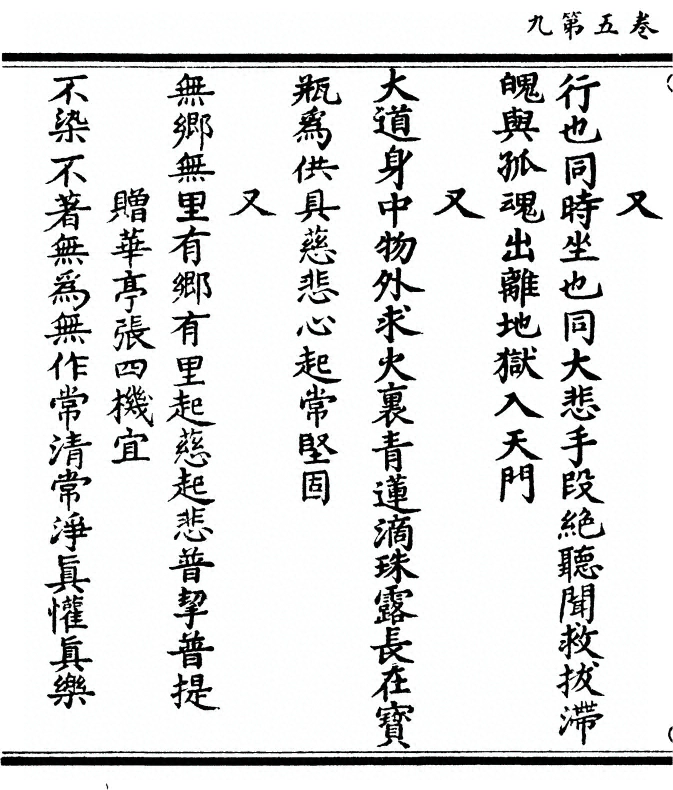 卷五第九
又
行也同時坐也同大悲手段絶聽聞救拔滯
魄與孤魂出離地獄入天門
又
大道身中物外求火裏青蓮滴珠露長在寶
瓶爲供具慈悲心起常堅固
又
無鄉無里有鄉有里起慈起悲普挈普提
贈華亭張四機宜
不染不著無爲無作常清常淨眞懽眞樂